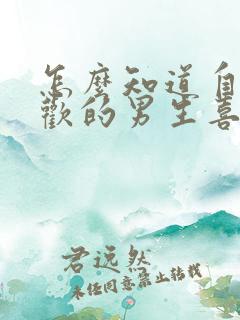 怎麼知道自
歡的男生喜
君远然
未经同意禁止转载